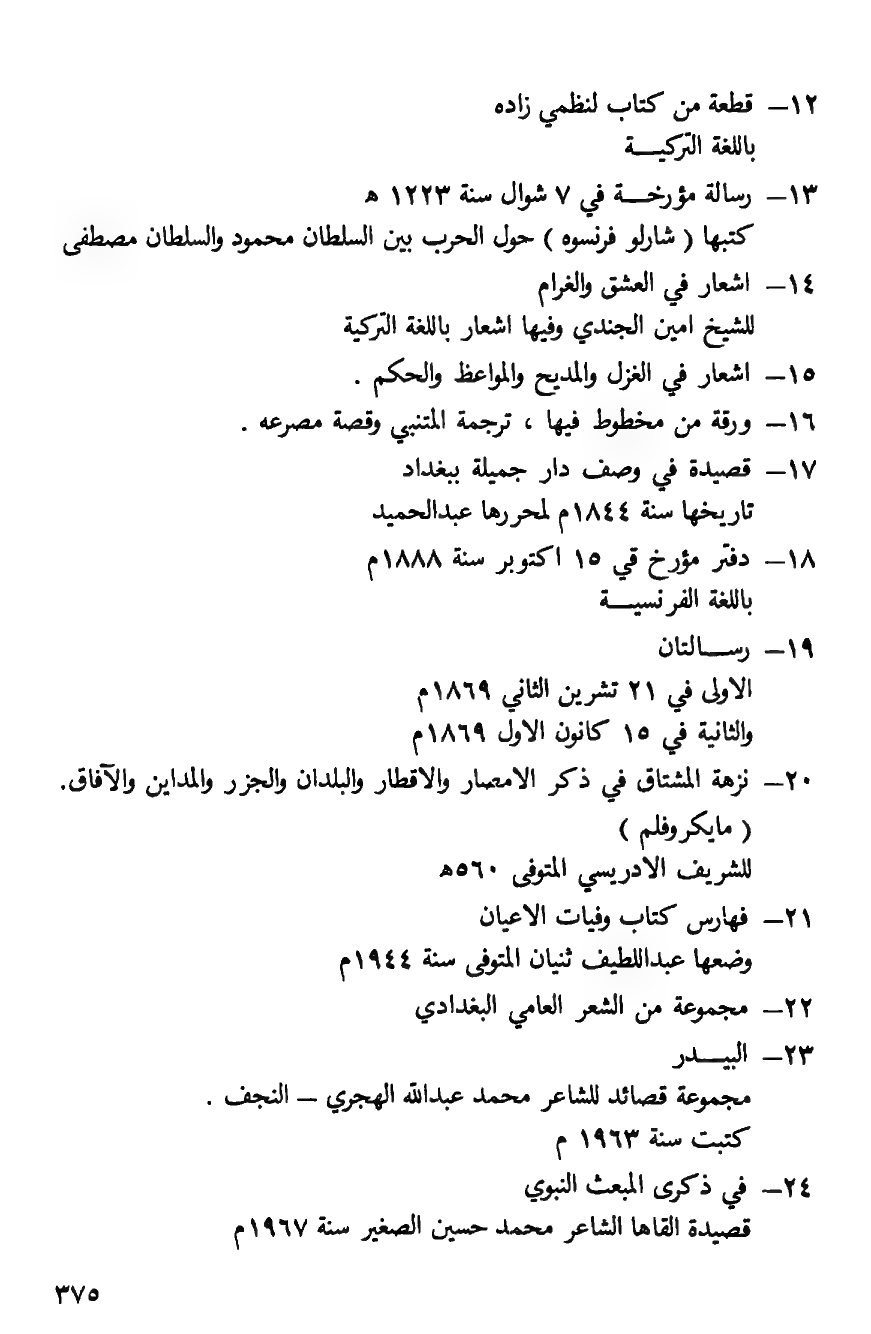 ١٢— قطعة من كتاب لنظمي زاده
باللغة التركيـــة
١٣— رسالة مؤرخـــة في ٧ شوال سنة ١٢٢٣ ه
كتبها ( شارلو فرنسوه ) حول الحرب بين السلطان محمود والسلطان مصطفى
١٤— اشعار في العشق والغرام
للشيخ امين الجندي وفيها اشعار باللغة التركية
١٥— اشعار في الغزل والمديح والمواعظ والحكم .
١٦— ورقة من مخطوط فيها ، ترجمة المتنبي وقصة مصرعه .
١٧— قصيدة في وصف دار جميلة ببغداد
تاريخها سنة ١٨٤٤م لمحررها عبدالحميد
١٨— دفتر مؤرخ قي ١٥ اكتوبر سنة ١٨٨٨م
باللغة الفرنسيـــة
١٩— رســـالتان
الاولى في ٢١ تشرين الثاني ١٨٦٩م
والثانية في ١٥ كانون الاول ١٨٦٩م
٢٠— نزهة المشتاق في ذكر الامصار والاقطار والبلدان والجزر والمداين والآفاق.
( مايكروفلم )
للشريف الادريسي المتوفى ٥٦٠ه
٢١— فهارس كتاب وفيات الاعيان
وضعها عبداللطيف ثنيان المتوفى سنة ١٩٤٤م
٢٢— مجموعة من الشعر العامي البغدادي
٢٣— البيـــدر
مجموعة قصائد للشاعر محمد عبدالله الهجري — النجف .
كتبت سنة ١٩٦٣ م
٢٤— في ذكرى المبعث النبوي
قصيدة القاها الشاعر محمد حسين الصغير سنة ١٩٦٧م
٣٧٥